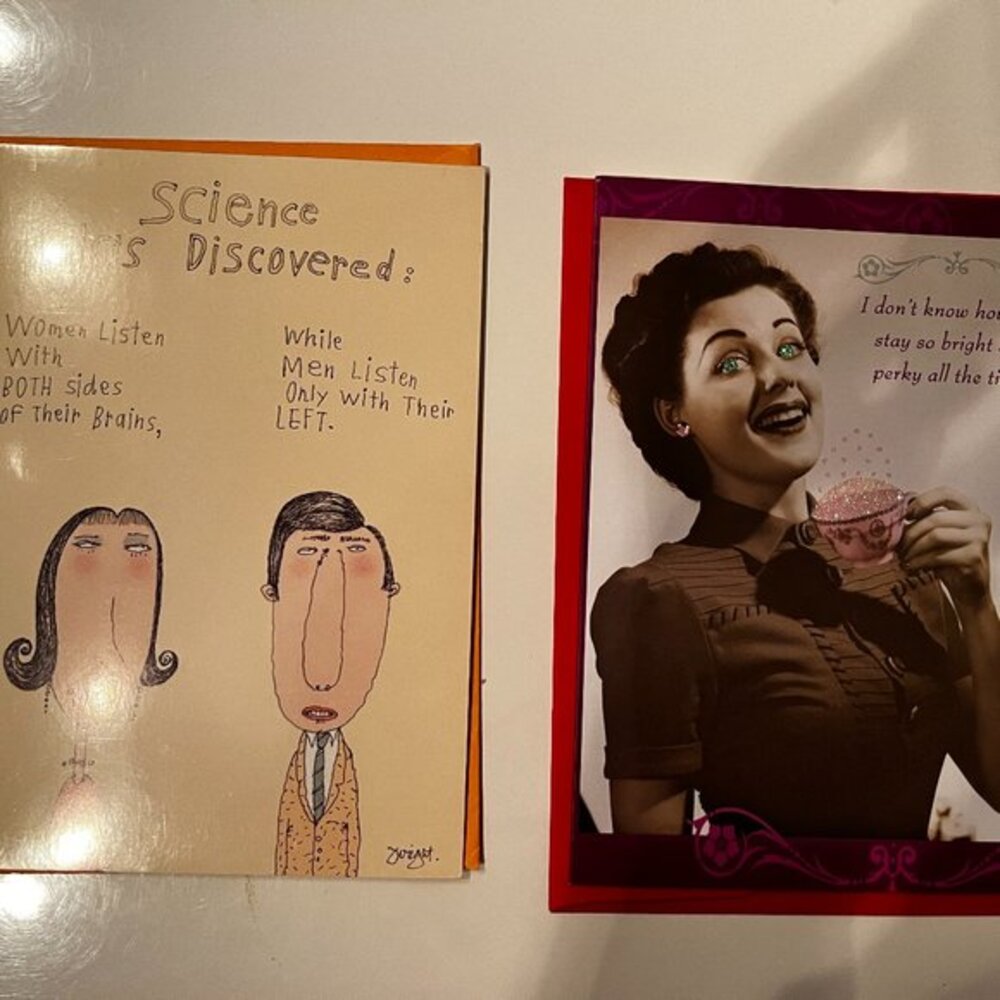 Science
Discovered:
Women Listen
With
BOTH sides
OF Their Brains,
While
Men Listen
Only With Their
LEFT.
I don't know
stay so bright
perky all the